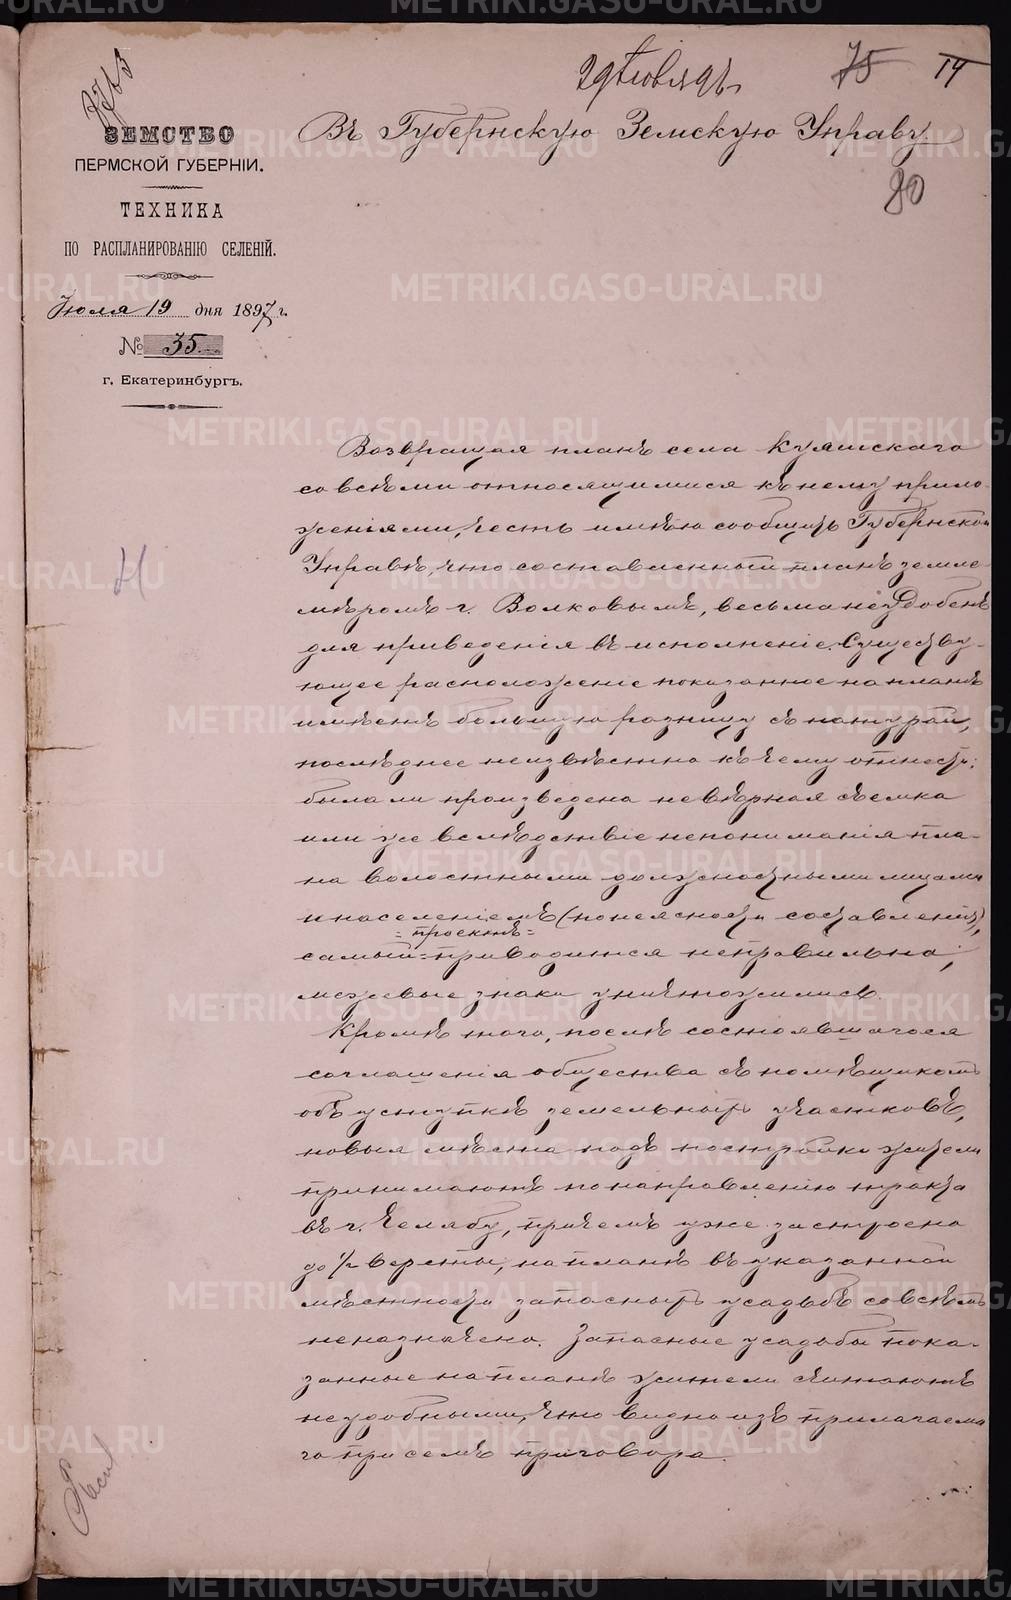 29 Іюля 97
75 14
80
ЗЕМСТВО
ПЕРМСКОЙ ГУБЕРНІИ.
ТЕХНИКА
ПО РАСПЛАНИРОВАНІЮ СЕЛЕНІЙ.
Іюля 19 дня 1897 г.
№ 35
г. Екатеринбургъ.
Въ Губернскую Земскую Управу.
Возвращая планъ села Куяшскаго
со всѣми относящимися къ нему прило-
женіями, честь имѣю сообщить Губернской
Управѣ, что составленный планъ земле-
мѣромъ г. Волковымъ, весьма неудобенъ
для приведенія въ исполненіе. Существу-
ющее расположеніе показанное на планѣ
имѣетъ большую разницу съ натурой,
послѣднее неизвѣстно къ чему отнести:
была ли произведена невѣрная съемка
или же вслѣдствіе непониманія пла-
на волостными должностными лицами
и населеніемъ (по неясности составленія),
=проектъ=
самый = приводится неправильно;
межевые знаки уничтожились.
Кромѣ того, послѣ состоявшагося
соглашенія общества съ помѣщикомъ
объ уступкѣ земельныхъ участковъ,
новыя мѣста подъ постройки жители
принимаютъ по направленію тракта
въ г. Челябу, причемъ уже застроено
до 1/2 версты, на планѣ въ указанной
мѣстности запасныхъ усадьбъ совсѣмъ
не назначено. Запасные усадьбы пока-
занные на планѣ жители считаютъ
неудобными, что видно изъ прилагаема-
го при семъ приговора.
METRIKI.GASO-URAL.RU